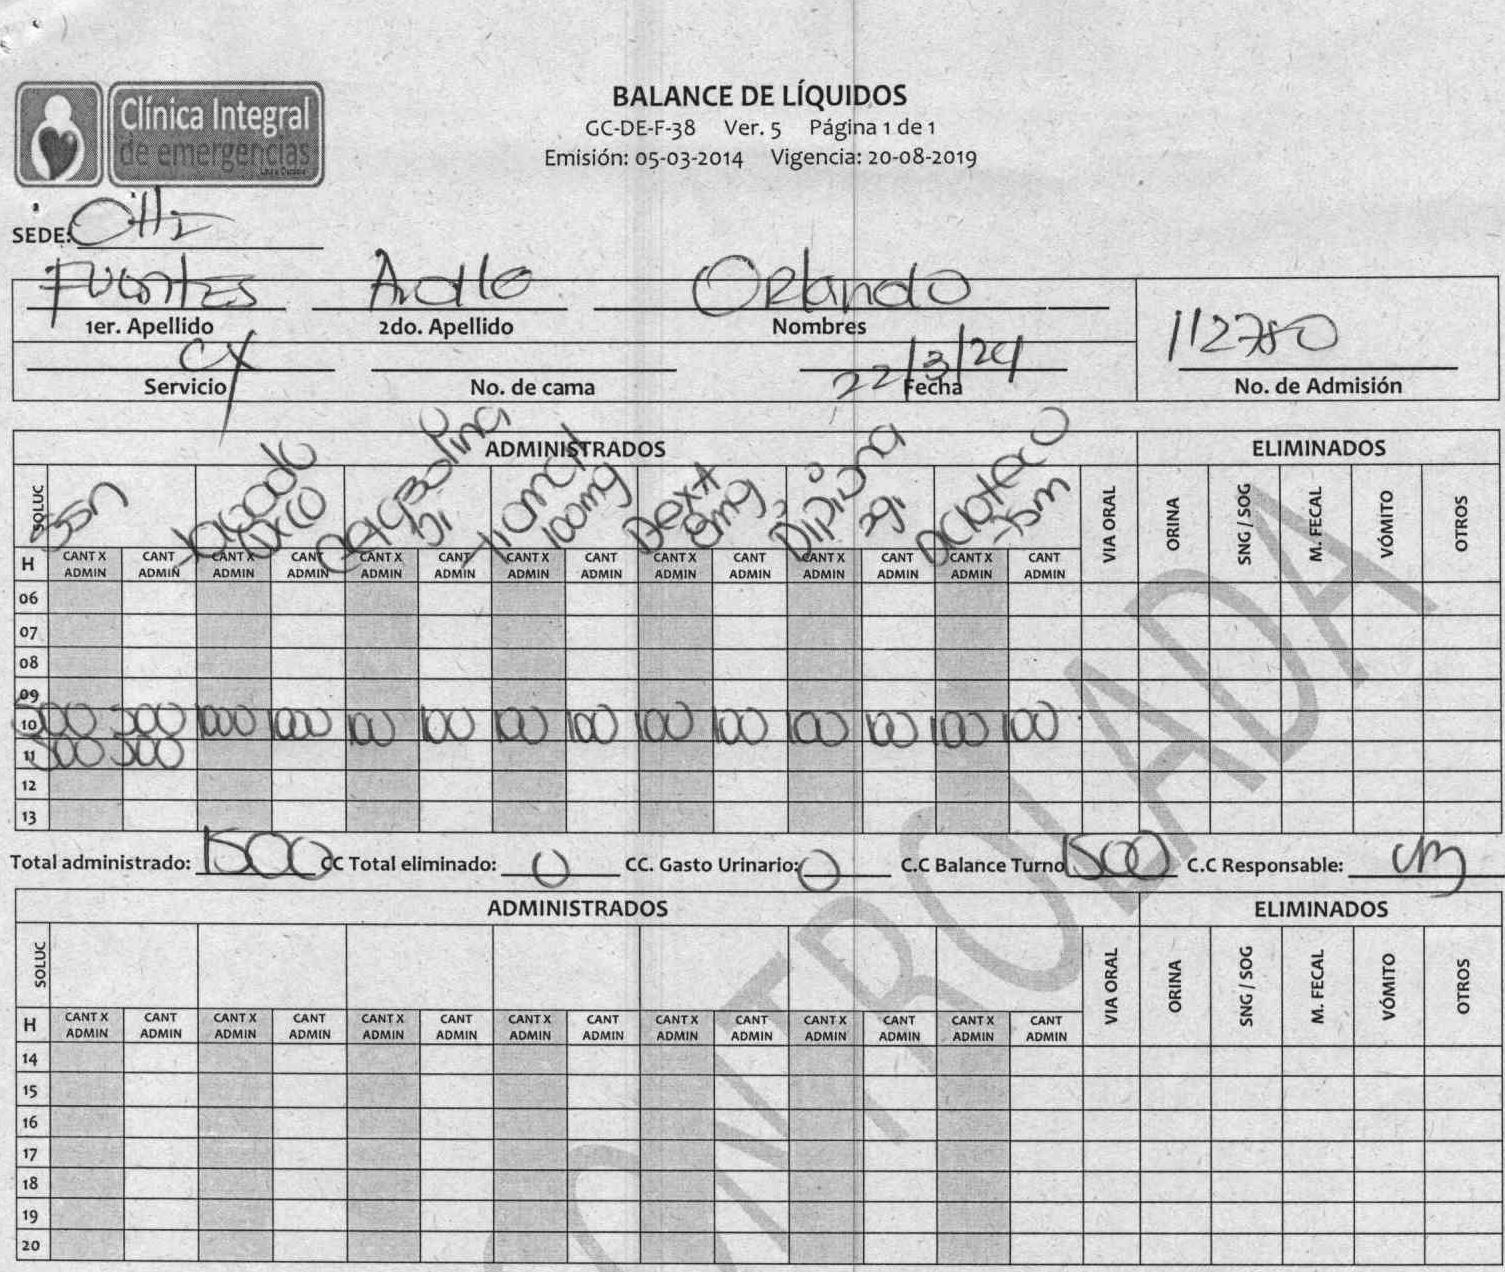 Clínica Integral
de emergencias
BALANCE DE LÍQUIDOS
GC-DE-F-38 Ver. 5 Página 1 de 1
Emisión: 05-03-2014 Vigencia: 20-08-2019
SEDE:
Fuentes Orlando
1er. Apellido 2do. Apellido Nombres
CX 22/3/24 112780
Servicio No. de cama Fecha No. de Admisión
ADMINISTRADOS ELIMINADOS
SOLUC SSN 100mg Dexa 8mg Dipirona 2gr 75m VIA ORAL ORINA SNG / SOG M. FECAL VÓMITO OTROS
H CANT X ADMIN CANT ADMIN CANT X ADMIN CANT ADMIN CANT X ADMIN CANT ADMIN CANT X ADMIN CANT ADMIN CANT X ADMIN CANT ADMIN CANT X ADMIN CANT ADMIN CANT X ADMIN CANT ADMIN
06
07
08
09
10 500 500 1000 1000 100 100 100 100 100 100 100 100 100 100
11 500 500
12
13
Total administrado: 1500 CC Total eliminado: 0 CC. Gasto Urinario: 0 C.C Balance Turno 1500 C.C Responsable:
ADMINISTRADOS ELIMINADOS
SOLUC VIA ORAL ORINA SNG / SOG M. FECAL VÓMITO OTROS
H CANT X ADMIN CANT ADMIN CANT X ADMIN CANT ADMIN CANT X ADMIN CANT ADMIN CANT X ADMIN CANT ADMIN CANT X ADMIN CANT ADMIN CANT X ADMIN CANT ADMIN CANT X ADMIN CANT ADMIN
14
15
16
17
18
19
20
CONTROLADA